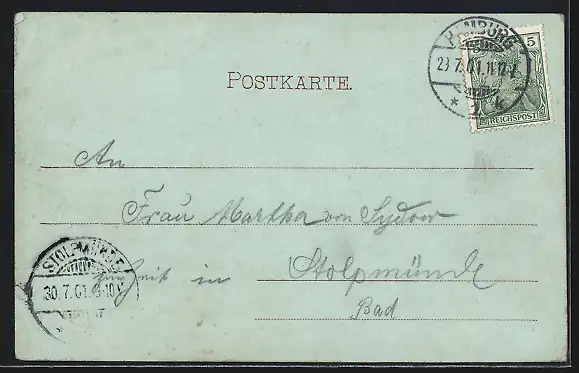 HAMBURG
29.7.01.11-12V.
* 1 k
5
REICHSPOST
POSTKARTE.
An
Frau Martha von Sydow
zur Zeit in Stolpmünde
Bad
STOLPMÜNDE
30.7.01.